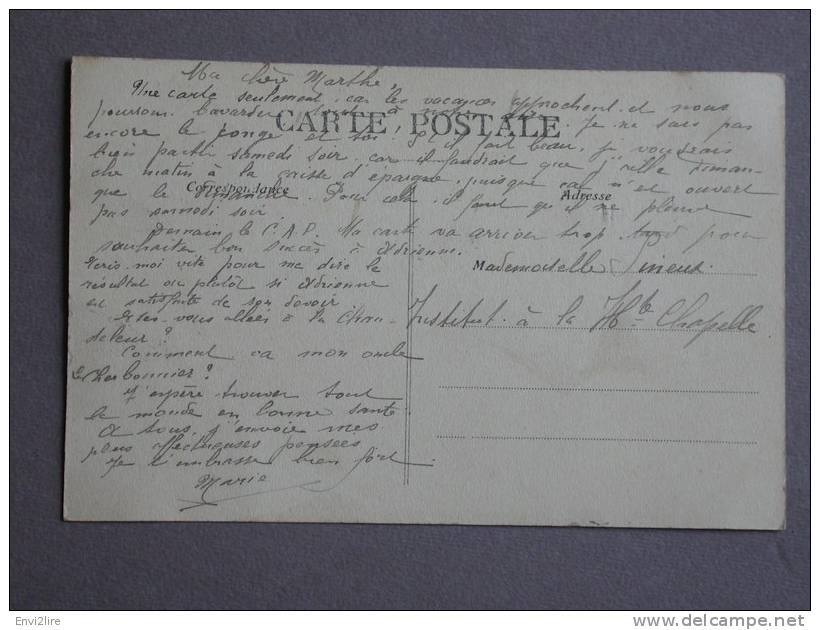 Ma chère Marthe,
Une carte seulement, car les vacances approchent et nous
pourrons bavarder toutes à notre Je ne sais pas
encore le congé et toi? S'il fait beau, je voudrais
bien partir samedi soir car il faudrait que j'aille diman-
che matin à la caisse d'épargne, puisque ça n'est ouvert
que le dimanche. Pour cela il faut qu'il ne pleuve
pas samedi soir.
Demain le C.A.P. Ma carte va arriver trop tard pour
souhaiter bon succès à Adrienne.
Ecris-moi vite pour me dire le
résultat ou plutôt si Adrienne
est satisfaite de son devoir.
Etes-vous allées à la Chan-
deleur?
Comment va mon oncle
Cherbonnier?
J'espère trouver tout
le monde en bonne santé.
A tous, j'envoie mes
plus affectueuses pensées
Je t'embrasse bien fort.
Marie
CARTE POSTALE
Correspondance
Adresse
Mademoiselle Gineux
Institut à la Hte Chapelle
Envi2lire
www.delcampe.net